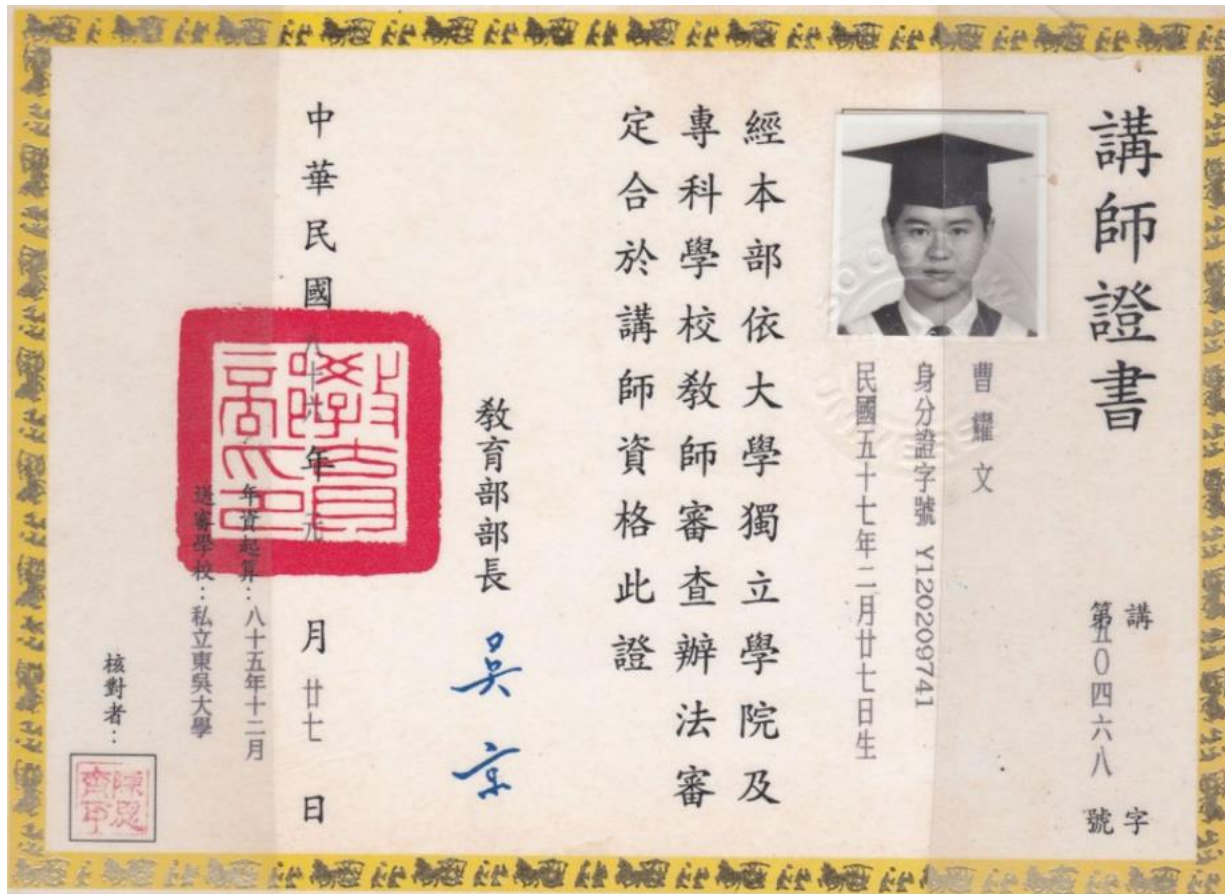 講師證書
講字
第五〇四六八號
曹耀文
身分證字號 Y120209741
民國五十七年二月廿七日生
經本部依大學獨立學院及
專科學校教師審查辦法審
定合於講師資格此證
教育部部長 吳京
中華民國八十六年元月廿七日
年資起算：八十五年十二月
送審學校：私立東吳大學
核對者：